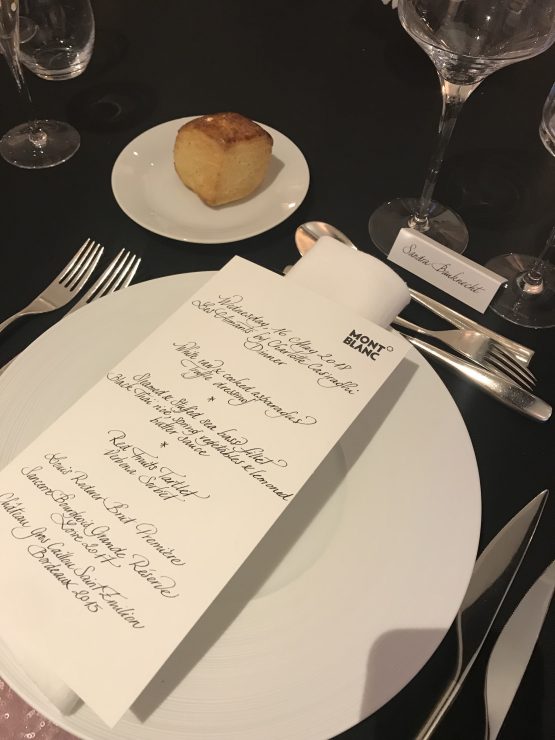 MONT
BLANC
Wednesday 16 May 2018
Les Aimants by Charlotte Casiraghi
Dinner
White raw & cooked asparaghus
Truffle dressing
*
Steamed & Stuffed sea bass fillet
Black "Thaï" rice, spring vegetables & lemoned
butter sauce
*
Red Fruits Tartlet
Verbena Sorbet
Louis Roederer Brut Première
Sancerre Bourgeois Grande Réserve
Loire 2017
Château Gros Caillou Saint Emilion
Bordeaux 2015
Sandra Bauknecht